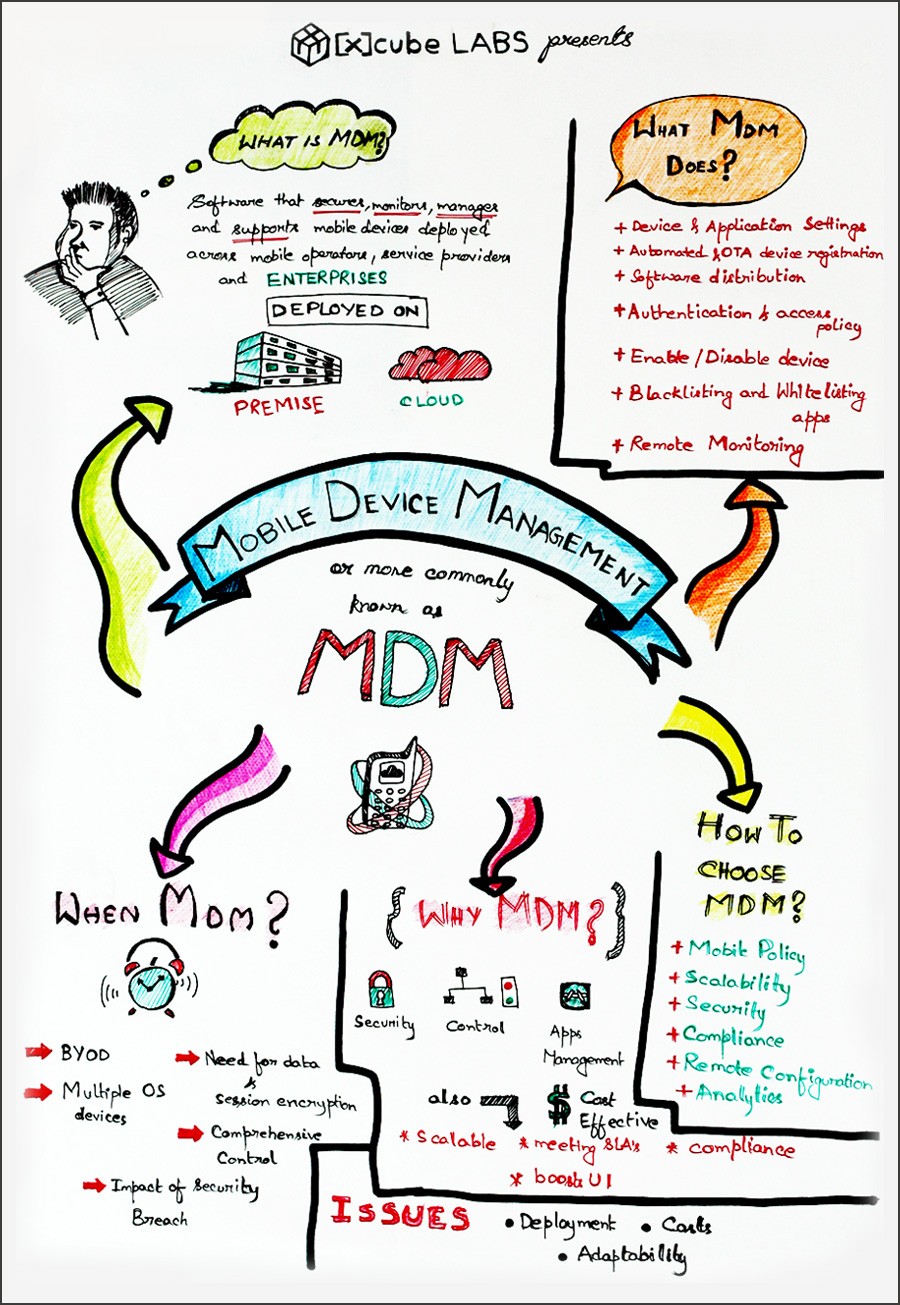 [x]cube LABS presents
WHAT IS MDM?
Software that secures, monitors, manages
and supports mobile devices deployed
across mobile operators, service providers
and ENTERPRISES
DEPLOYED ON
PREMISE
CLOUD
WHAT MDM
DOES?
+ Device & Application Settings
+ Automated & OTA device registration
+ Software distribution
+ Authentication & access
policy
+ Enable / Disable device
+ Blacklisting and Whitelisting
apps
+ Remote Monitoring
MOBILE DEVICE MANAGEMENT
or more commonly
known as
MDM
WHEN MDM?
BYOD
Multiple OS
devices
Need for data
&
Session encryption
Comprehensive
Control
Impact of Security
Breach
{ WHY MDM? }
Security
Control
Apps
Management
also
$ Cost
Effective
* Scalable * meeting SLA's * compliance
* boosts UI
HOW TO
CHOOSE
MDM?
+ Mobile Policy
+ Scalability
+ Security
+ Compliance
+ Remote Configuration
+ Analytics
ISSUES
• Deployment • Costs
• Adaptability